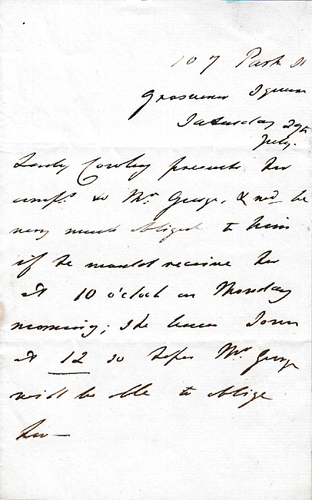 107 Park St
Grosvenor Square
Saturday 29th
July.
Lady Cowley presents her
compts to Mr. George, & wd be
very much obliged to him
if he would receive her
at 10 o'clock on Monday
morning; she leaves Town
at 12 so hopes Mr. George
will be able to oblige
her—